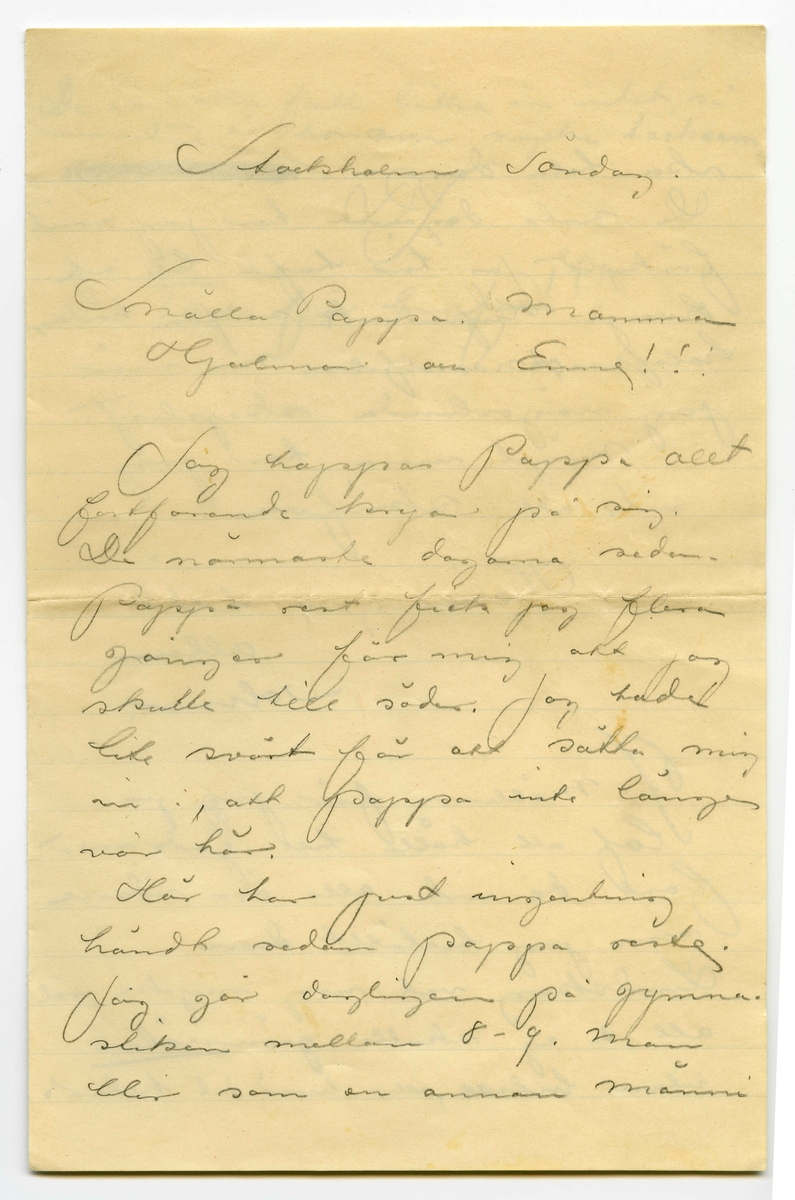 Stockholm Söndag.
Snälla Pappa. Mamma
Hjalmar och Enny!!!
Jag hoppas Pappa allt
fortfarande kryar på sig.
De närmaste dagarna sedan
Pappa rest fick jag flera
gånger för mig att jag
skulle till söder. Jag hade
lite svårt för att sätta mig
in i, att pappa inte länger
var här.
Här har just ingenting
händt sedan pappa reste.
Jag går dagligen på gymna-
stiken mellan 8-9. Man
blir som en annan männi